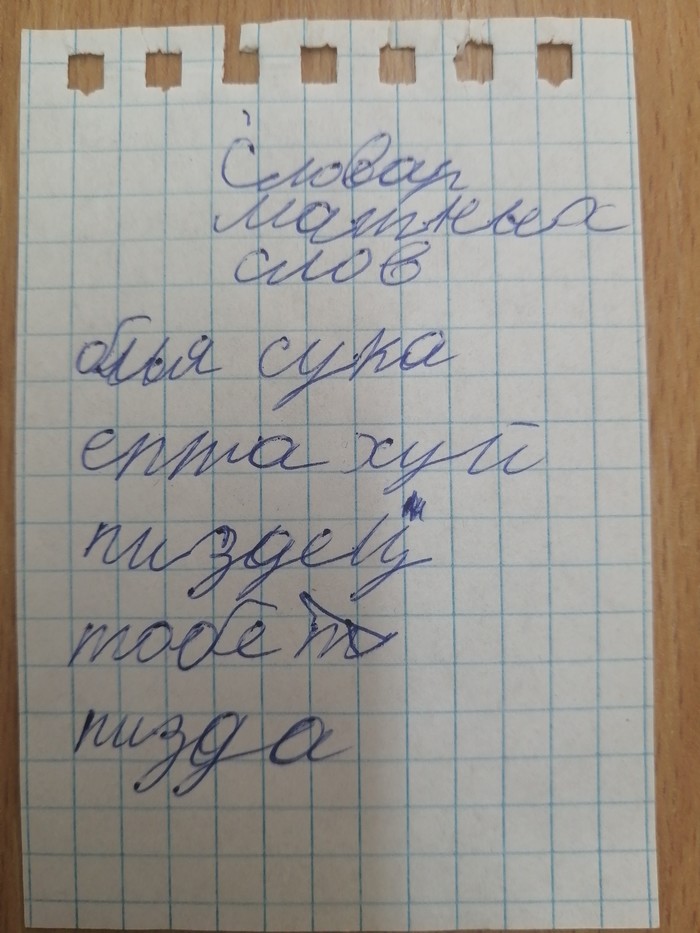 Словар
матных
слов
блья сука
епта хуй
пиздец
тобет
пизда